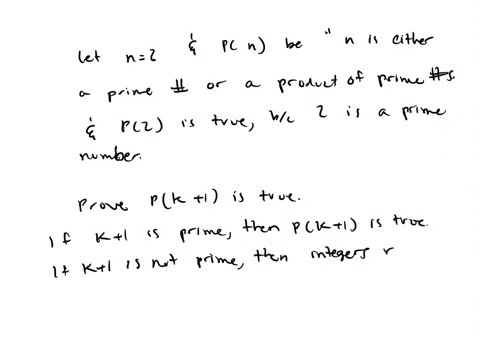 let n=2 & P(n) be " n is either
a prime # or a product of prime #s
& P(2) is true, b/c 2 is a prime
number.
Prove P(k+1) is true.
If k+1 is prime, then P(k+1) is true.
If k+1 is not prime, then integers r